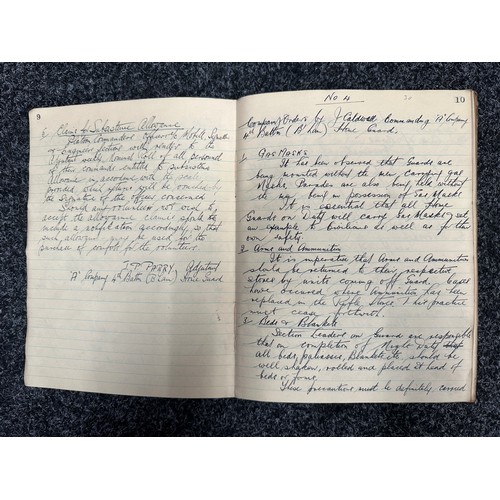 9
Claim for Subsistence Allowance
Platoon Commanders, Officers i/c
render to the
Adjutant weekly, Nominal Roll of all personnel
of their commands entitled to Subsistence
Allowance in accordance with the scale
provided. Such returns will be vouched by
the signature of the officer concerned.
Should any volunteer not wish to
accept the allowance claims should
include a notification accordingly, so that
such allowance may be used for the
purchase of comfort for the volunteers.
J. T. PARRY. Adjutant
'A' Company 4th Battn (B'ham) Home Guard
10
No 4
Company Orders by J Caldwell Commanding 'A' Company
4th Battn (B'ham) Home Guard.
1. GAS MASKS
It has been observed that Guards are
being mounted without the men carrying Gas
Masks. Parades are also being held without
the men being in possession of Gas Masks.
It is essential that all Home
Guards on Duty will carry Gas Masks & set
an example to Civilians as well as for their
own safety.
2. Arms and Ammunition
It is imperative that Arms and Ammunition
should be returned to their respective
stores by units coming off Guard. Cases
have occurred where Ammunition has been
replaced in the Rifle Store & this practice
must cease forthwith.
3. Beds & Blankets
Section Leaders on Guard are responsible
that on completion of Night Duty
all beds, paliasses, Blankets etc should be
well shaken, rolled and placed at head of
beds or forms.
These precautions must be definitely carried